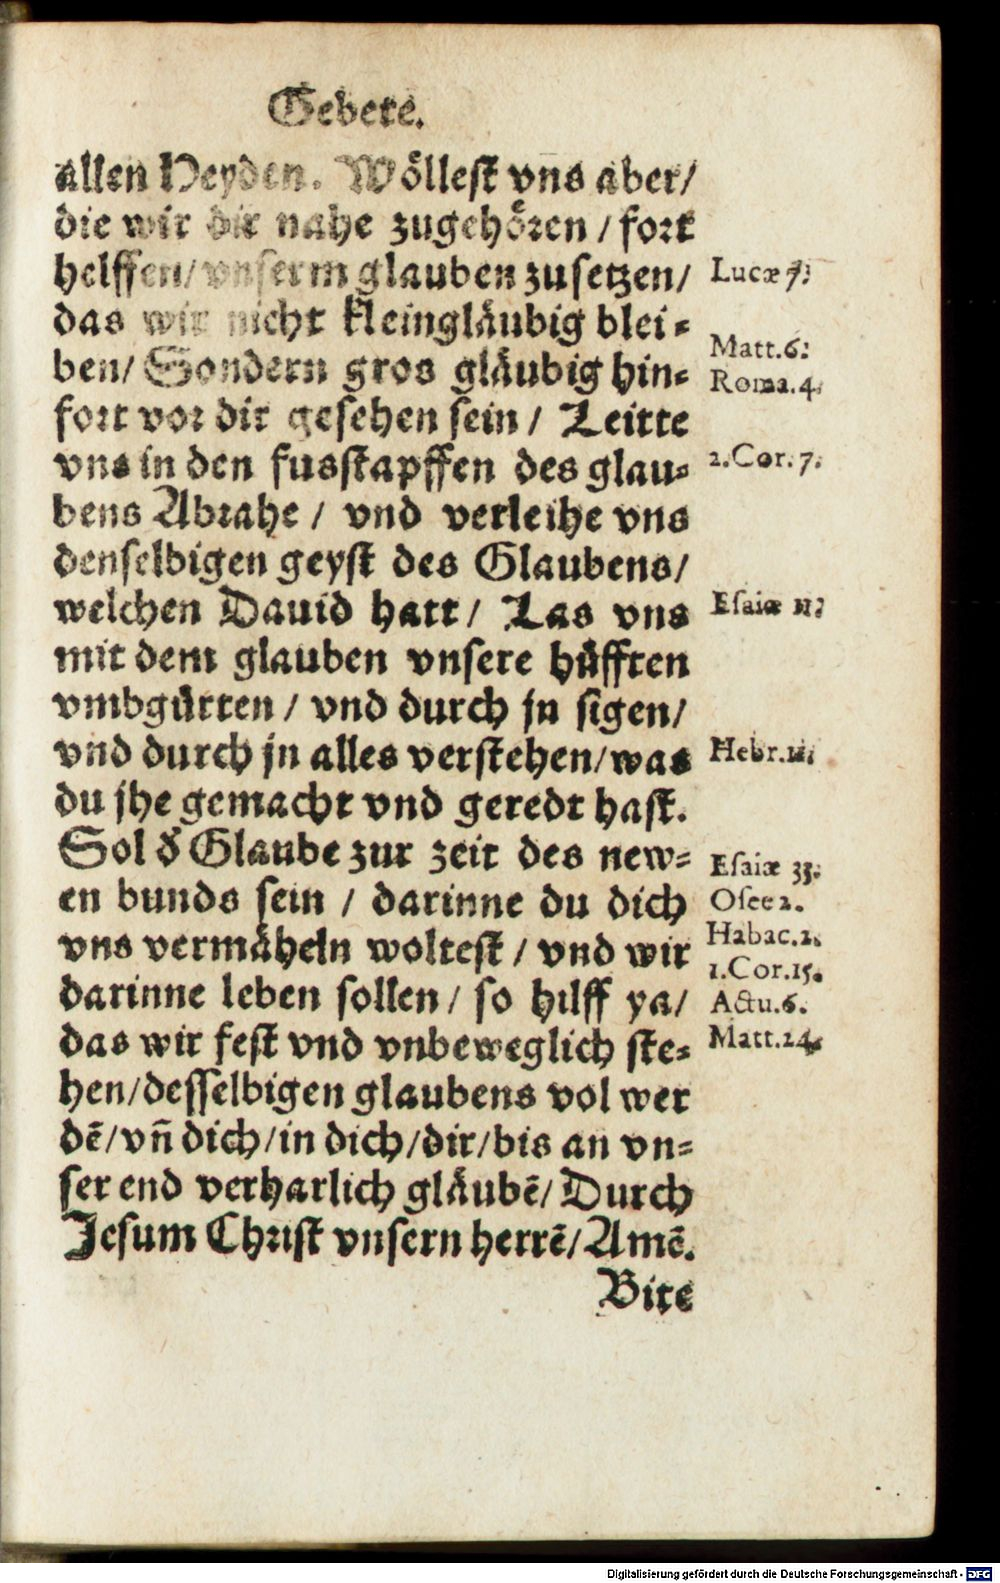 Gebetē.
allen Heyden. Wöllest vns aber/
die wir dir nahe zugehören / fort
helffen/ vnserm glauben zusetzen/
Lucæ 7:
das wir nicht kleingläubig blei-
Matt.6:
ben/ Sondern gros gläubig hin-
Roma.4.
fort vor dir gesehen sein / Leitte
vns in den fusstapffen des glau-
2.Cor.7.
bens Abrahe / vnd verleihe vns
denselbigen geyst des Glaubens/
welchen Dauid hatt/ Las vns
Esaiæ 11:
mit dem glauben vnsere hüfften
vmbgürten / vnd durch jn sigen/
vnd durch jn alles verstehen/was
Hebr.11:
du jhe gemacht vnd geredt hast.
Sol d' Glaube zur zeit des new-
Esaiæ 33.
en bunds sein / darinne du dich
Osee 2.
vns vermäheln woltest / vnd wir
Habac.2.
1.Cor.15.
darinne leben sollen / so hilff ya/
Actu.6.
das wir fest vnd vnbeweglich ste-
Matt.24.
hen/desselbigen glaubens vol wer
dē/vñ dich/in dich/dir/bis an vn-
ser end verharlich gläubē/ Durch
Jesum Christ vnsern herrē/Amē.
Bite
Digitalisierung gefördert durch die Deutsche Forschungsgemeinschaft - DFG